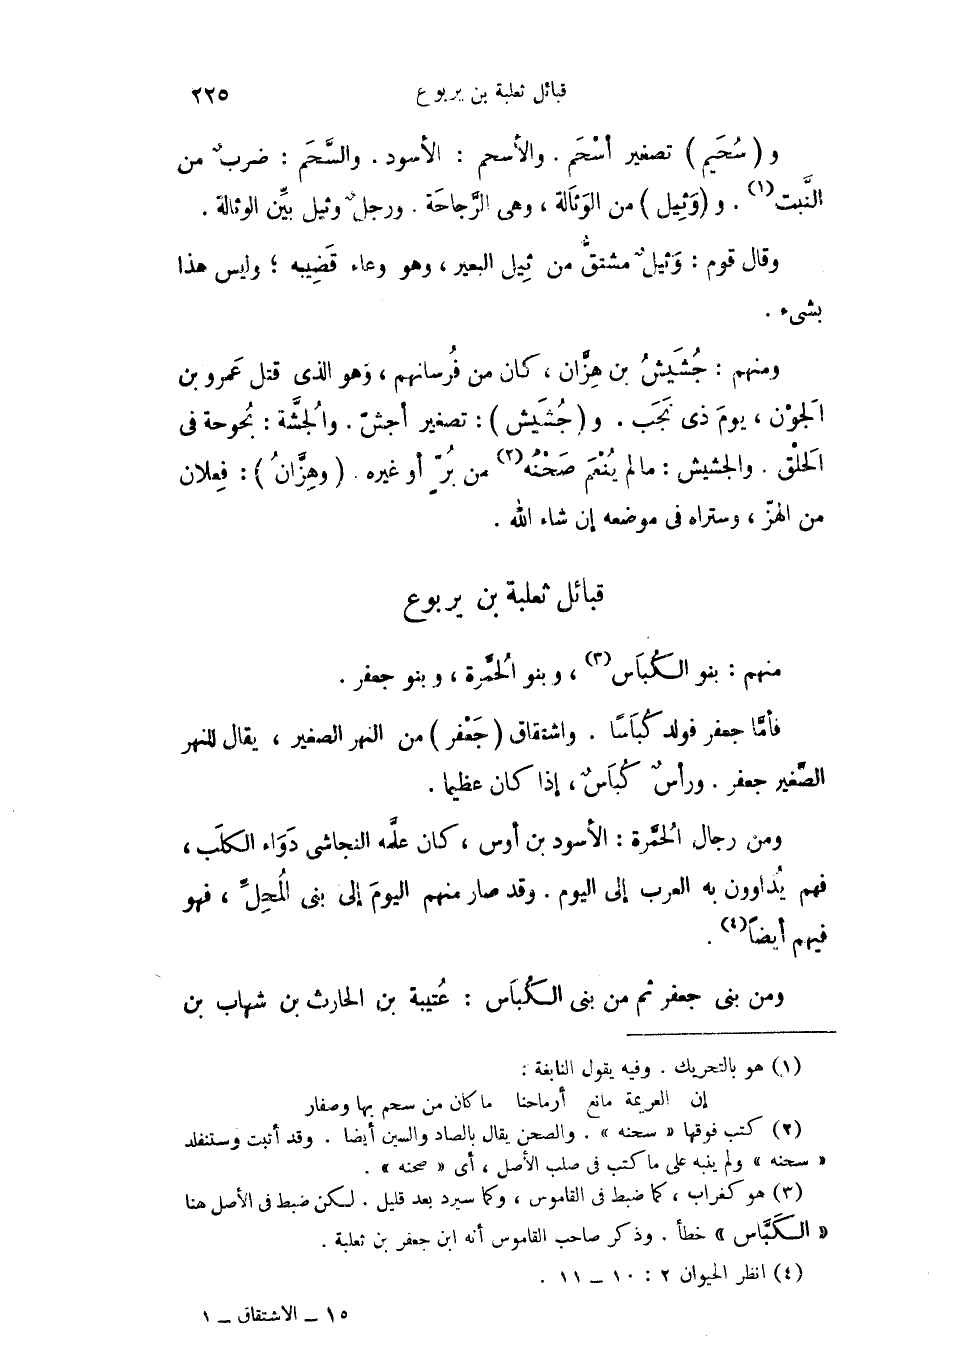 قبائل ثعلبة بن يربوع ٢٢٥
و ( سُحَيم ) تصغير أسْحَم . والأسحم : الأسود . والسَّحَم : ضربٌ من
النَّبت(١) . و ( وَثِيل ) من الوَثَالة ، وهى الرَّجاحَة . ورجلٌ وثيل بيِّن الوثالة .
وقال قوم : وَثيلٌ مشتقٌّ من ثِيل البعير ، وهو وعاء قَضِيبه ؛ وليس هذا
بشىء .
ومنهم : جُشَيشُ بن هِزَّان ، كان من فُرسانهم ، وهو الذى قتل عَمرو بن
الَجوْن ، يومَ ذى نَجَب . و ( جُشَيش ) : تصغير أجشّ . والُجشَّة : بُحوحة فى
الَحلْق . والجشيش : مالم يُنْعَم صَحْنُه(٢) من بُرٍّ أو غيره . ( وهِزَّانُ ) : فِعلان
من الهزّ ، وستراه فى موضعه إن شاء الله .
قبائل ثعلبة بن يربوع
منهم : بنو الكُبَاس(٣) ، وبنو الُحمَّرة ، وبنو جعفر .
فأمَّا جعفر فولد كُبَاسًا . واشتقاق ( جَعْفر ) من النهر الصغير ، يقال للنهر
الصَّغير جعفر . ورأسٌ كُبَاسٌ ، إذا كان عظيما .
ومن رجال الُحمَّرة : الأسود بن أوس ، كان علَّمه النجاشى دَوَاء الكلَب ،
فهم يُداوون به العرب إلى اليوم . وقد صار منهم اليومَ إلى بنى الُمحِلّ ، فهو
فيهم أيضاً(٤) .
ومن بنى جعفر ثم من بنى الكُبَاس : عُتيبة بن الحارث بن شهاب بن
(١) هو بالتحريك . وفيه يقول النابغة :
إن العريمة مانع أرماحنا ماكان من سحم بها وصفار
(٢) كتب فوقها « سحنه » . والصحن يقال بالصاد والسين أيضا . وقد أثبت وستنفلد
« سحنه » ولم ينبه على ماكتب فى صلب الأصل ، أى « صحنه » .
(٣) هو كغراب ، كما ضبط فى القاموس ، وكما سيرد بعد قليل . لكن ضبط فى الأصل هنا
« الكَبَّاس » خطأ . وذكر صاحب القاموس أنه ابن جعفر بن ثعلبة .
(٤) انظر الحيوان ٢ : ١٠ – ١١ .
١٥ – الاشتقاق – ١